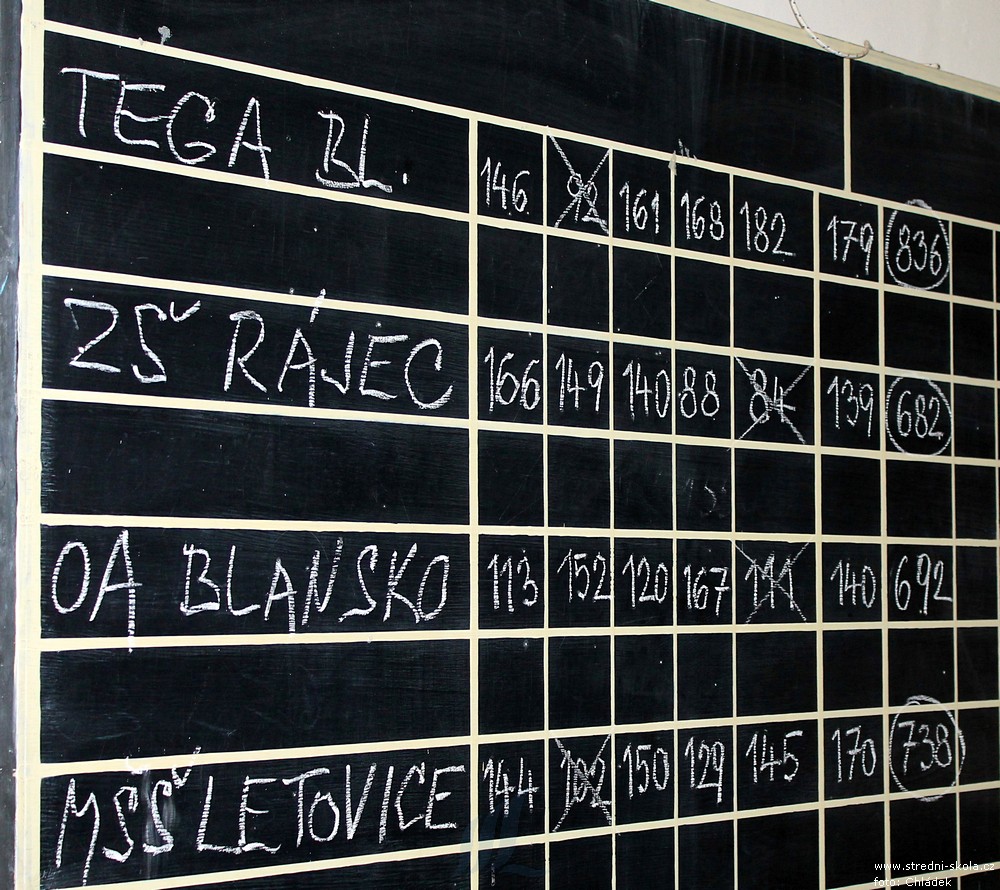 TEGA BL. 146 92 161 168 182 179 836
ZŠ RÁJEC 166 149 140 88 84 139 682
OA BLANSKO 113 152 120 167 111 140 692
MSŠ LETOVICE 144 102 150 129 145 170 738
www.stredni-skola.cz
foto: Chládek